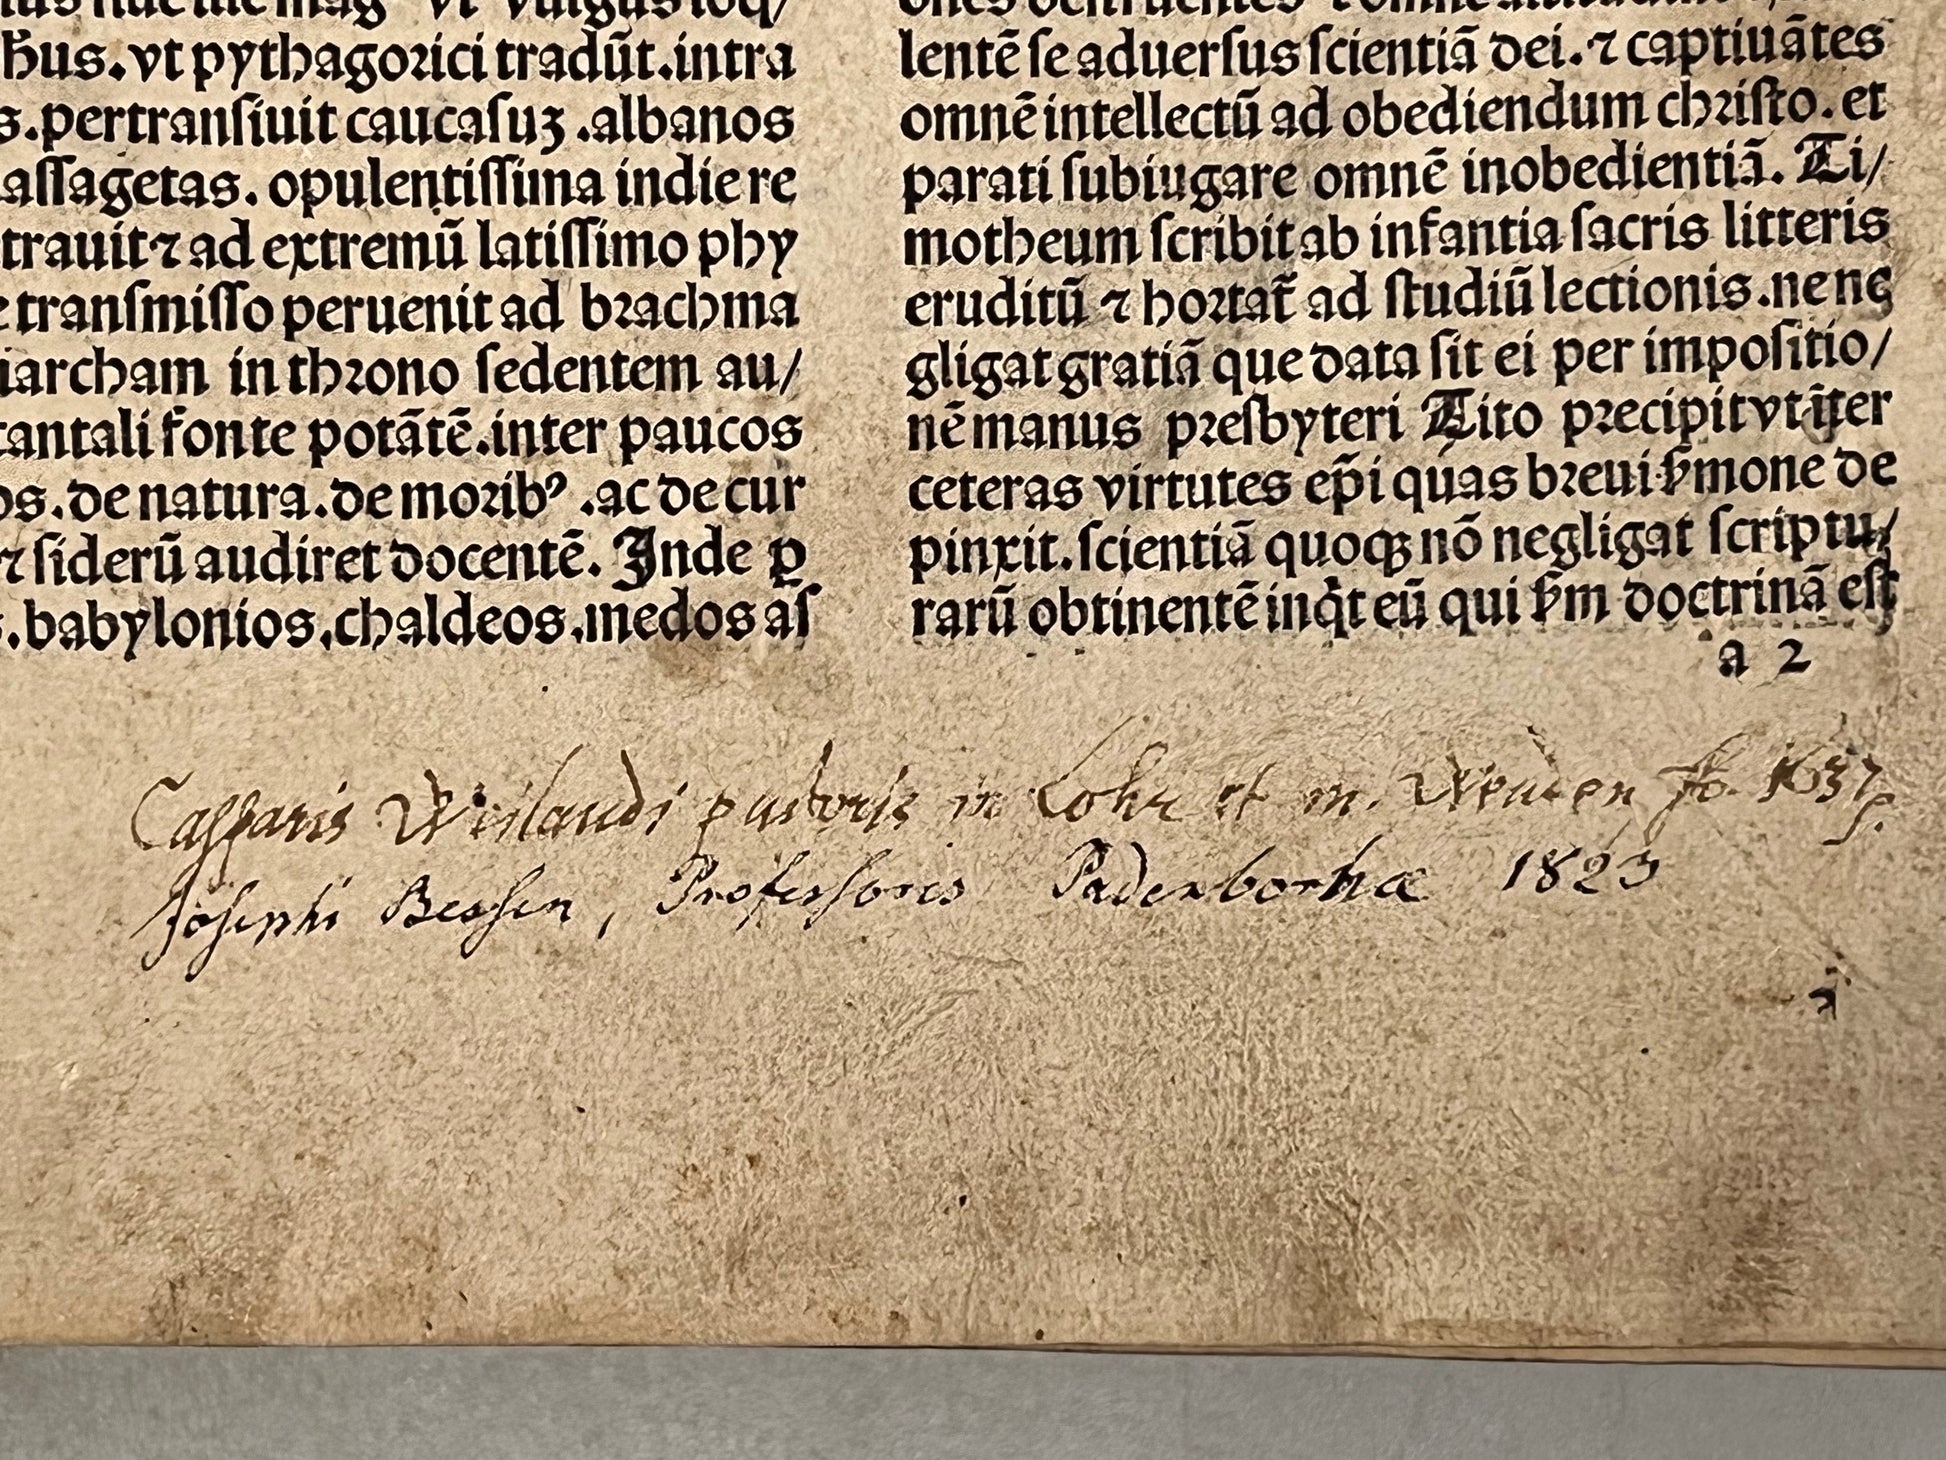 vt vulgus loq/
ħus.vt pythagorici tradūt.intra
s.pertransiuit caucasuʒ.albanos
assagetas. opulentissima indie re
trauit ⁊ ad extremū latissimo phy
e transmisso peruenit ad brachma
iarcham in throno sedentem au/
tantali fonte potātē.inter paucos
os.de natura.de moribꝰ.ac de cur
⁊ siderū audiret docentē. Inde ꝑ
s.babylonios.chaldeos.medos as
lentē se aduersus scientiā dei.⁊ captiuātes
omnē intellectū ad obediendum christo.et
parati subiugare omnē inobedientiā. Ti/
motheum scribit ab infantia sacris litteris
eruditū ⁊ hortat̄ ad studiū lectionis.ne neg
gligat gratiā que data sit ei per impositio/
nē manus presbyteri Tito precipit vt īter
ceteras virtutes ep̄i quas breui ẜmone de
pinxit.scientiā quoqꝫ nō negligat scriptu/
rarū obtinentē inqͥt eū qui ẜm doctrinā est
a 2
Casparis Weilandi pastoris in Lohr et m. Wenden 1637
Josephi Bessen, Professoris Paderbornæ 1823